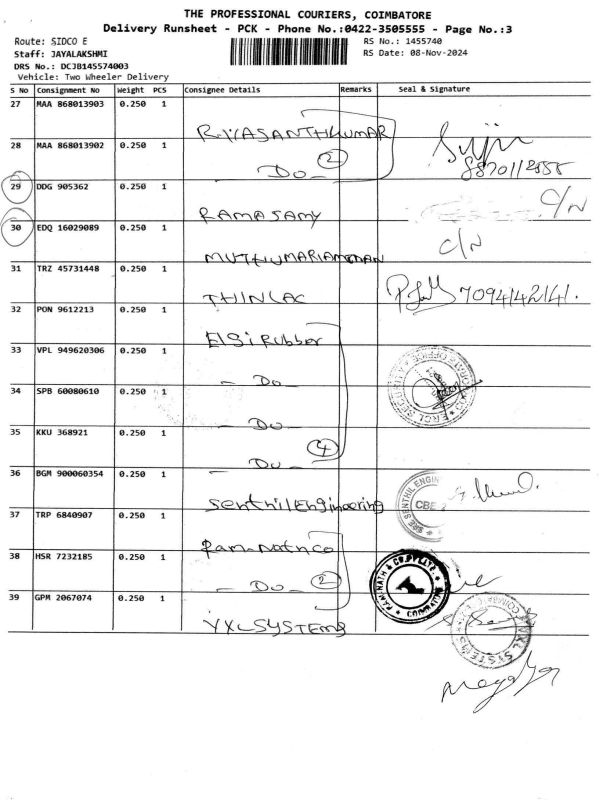 THE PROFESSIONAL COURIERS, COIMBATORE
Delivery Runsheet - PCK - Phone No.:0422-3505555 - Page No.:3
Route: SIDCO E
RS No.: 1455740
Staff: JAYALAKSHMI
RS Date: 08-Nov-2024
DRS No.: DCJB145574003
Vehicle: Two Wheeler Delivery
S No Consignment No Weight PCS Consignee Details Remarks Seal & Signature
27 MAA 868013903 0.250 1 R.VASANTHKUMAR
28 MAA 868013902 0.250 1 - Do - 2
29 DDG 905362 0.250 1 RAMASAMY C/N
30 EDQ 16029089 0.250 1 MUTHUMARIAMMAN C/N
31 TRZ 45731448 0.250 1 THINLAC 7094142141.
32 PON 9612213 0.250 1 Elgi Rubber
33 VPL 949620306 0.250 1 - Do -
34 SPB 60080610 0.250 1 - Do -
35 KKU 368921 0.250 1 - Do - 4
36 BGM 900060354 0.250 1 Senthil Engineering
SRE SENTHIL ENGIN
CBE
37 TRP 6840907 0.250 1 Ram.Nath co
38 HSR 7232185 0.250 1 - Do - 2
39 GPM 2067074 0.250 1 VXL SYSTEMS